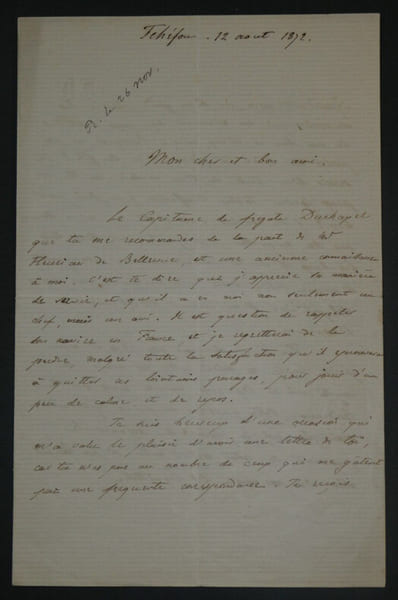 Tchéfou. 12 aout 1872.
R. le 26 nov.
Mon cher et bon ami.
Le Capitaine de frégate Duchapel
que tu me recommandes de la part de Mr
de Bellerive, est une ancienne connaissance
à moi. C'est te dire que j'apprécie sa manière
de servir, et qu'il a en moi non seulement un
chef, mais un ami. Il est question de rappeler
son navire en France et je regretterai de le
perdre, malgré toute la satisfaction qu'il éprouvera
à quitter ces lointains parages, pour jouir d'un
peu de calme et de repos.
Je suis heureux d'une occasion qui
m'a valu le plaisir d'avoir une lettre de toi,
car tu n'es pas au nombre de ceux qui me gâtent
par une fréquente correspondance. Tu